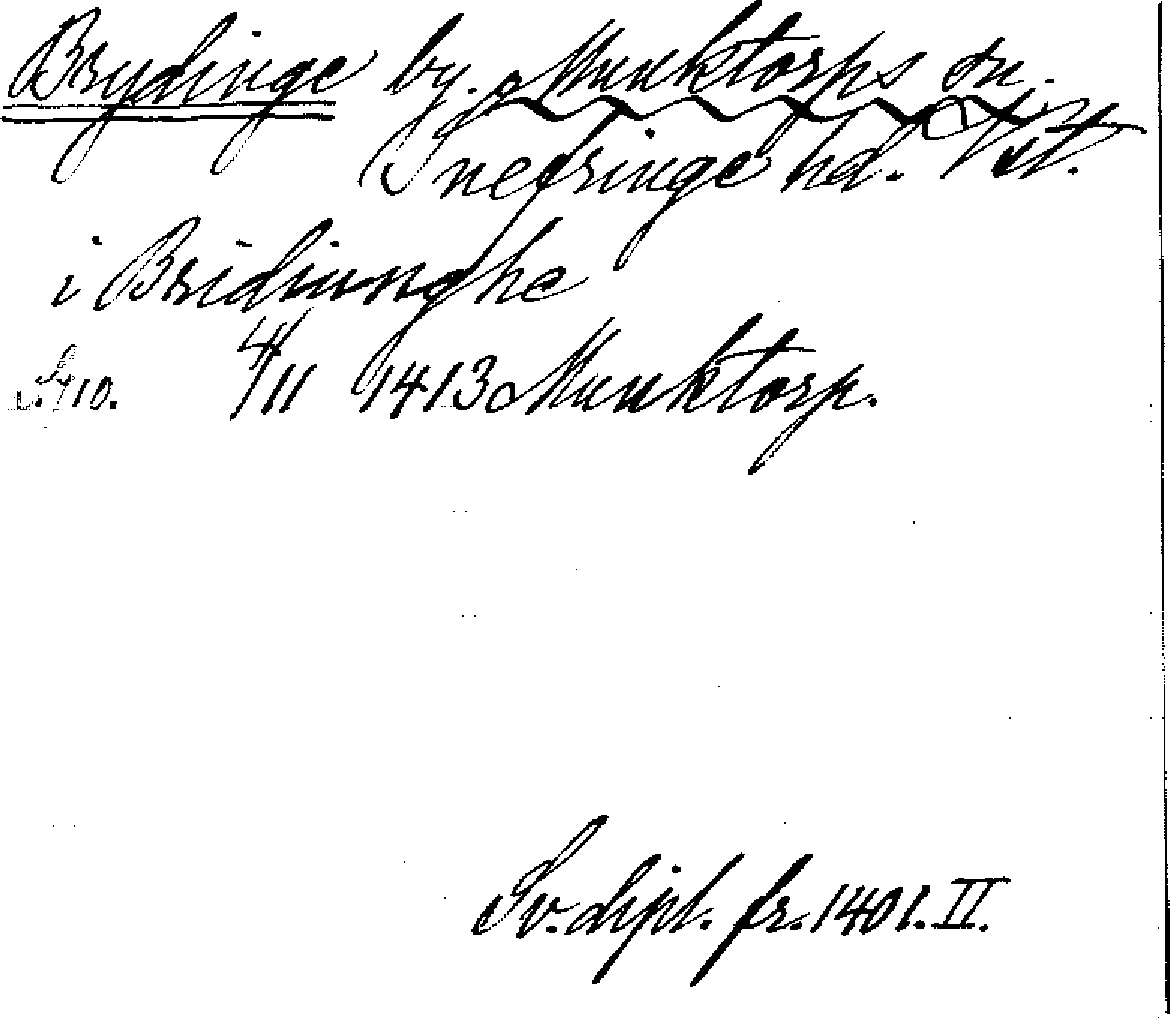 Brydinge by. Munktorps sn.
Snefringe hd. Vstl.
i Bridiunghe
S. 710. 4/11 1413 Munktorp.
Sv. dipl. fr. 1401. II.